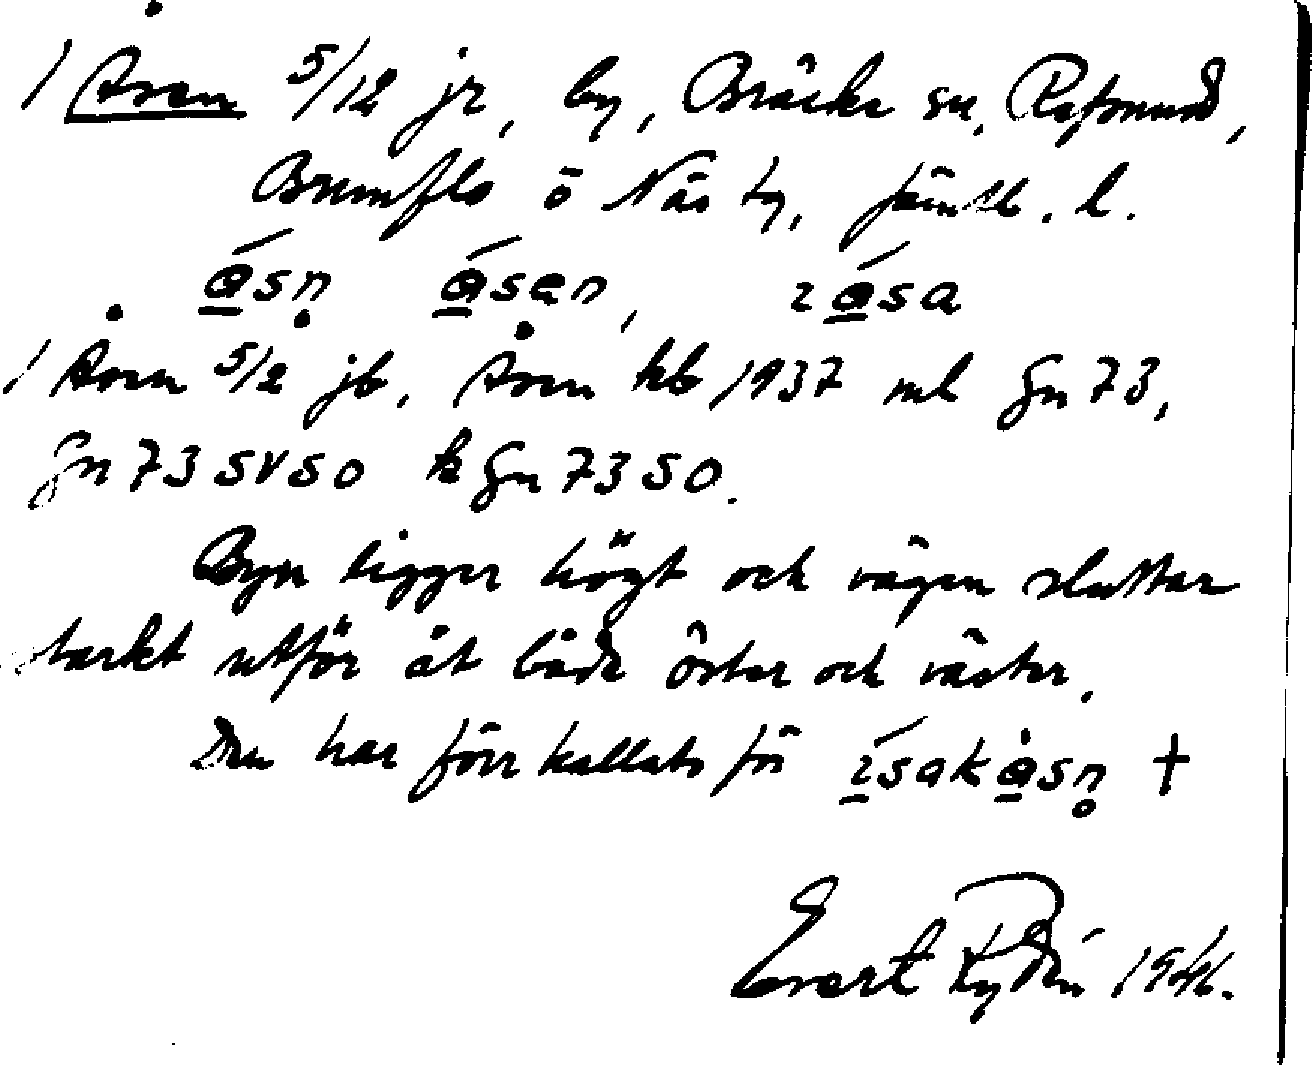 1 Åsen 5/12 jr, by, Bräcke sn, Refsund,
Brunflo o Näs tg, Jämtl. l.
åsn̥ åsen, i åsa
1 Åsen 5/2 jb, Åsen kb 1937 mb Gn 73,
Gn 73 SVSO k Gn 73 SO.
Byn ligger högt och vägen sluttar
starkt utför åt både öster och väster.
Den har förr kallats för isakåsn̥ +
Evert Rydén 1946.